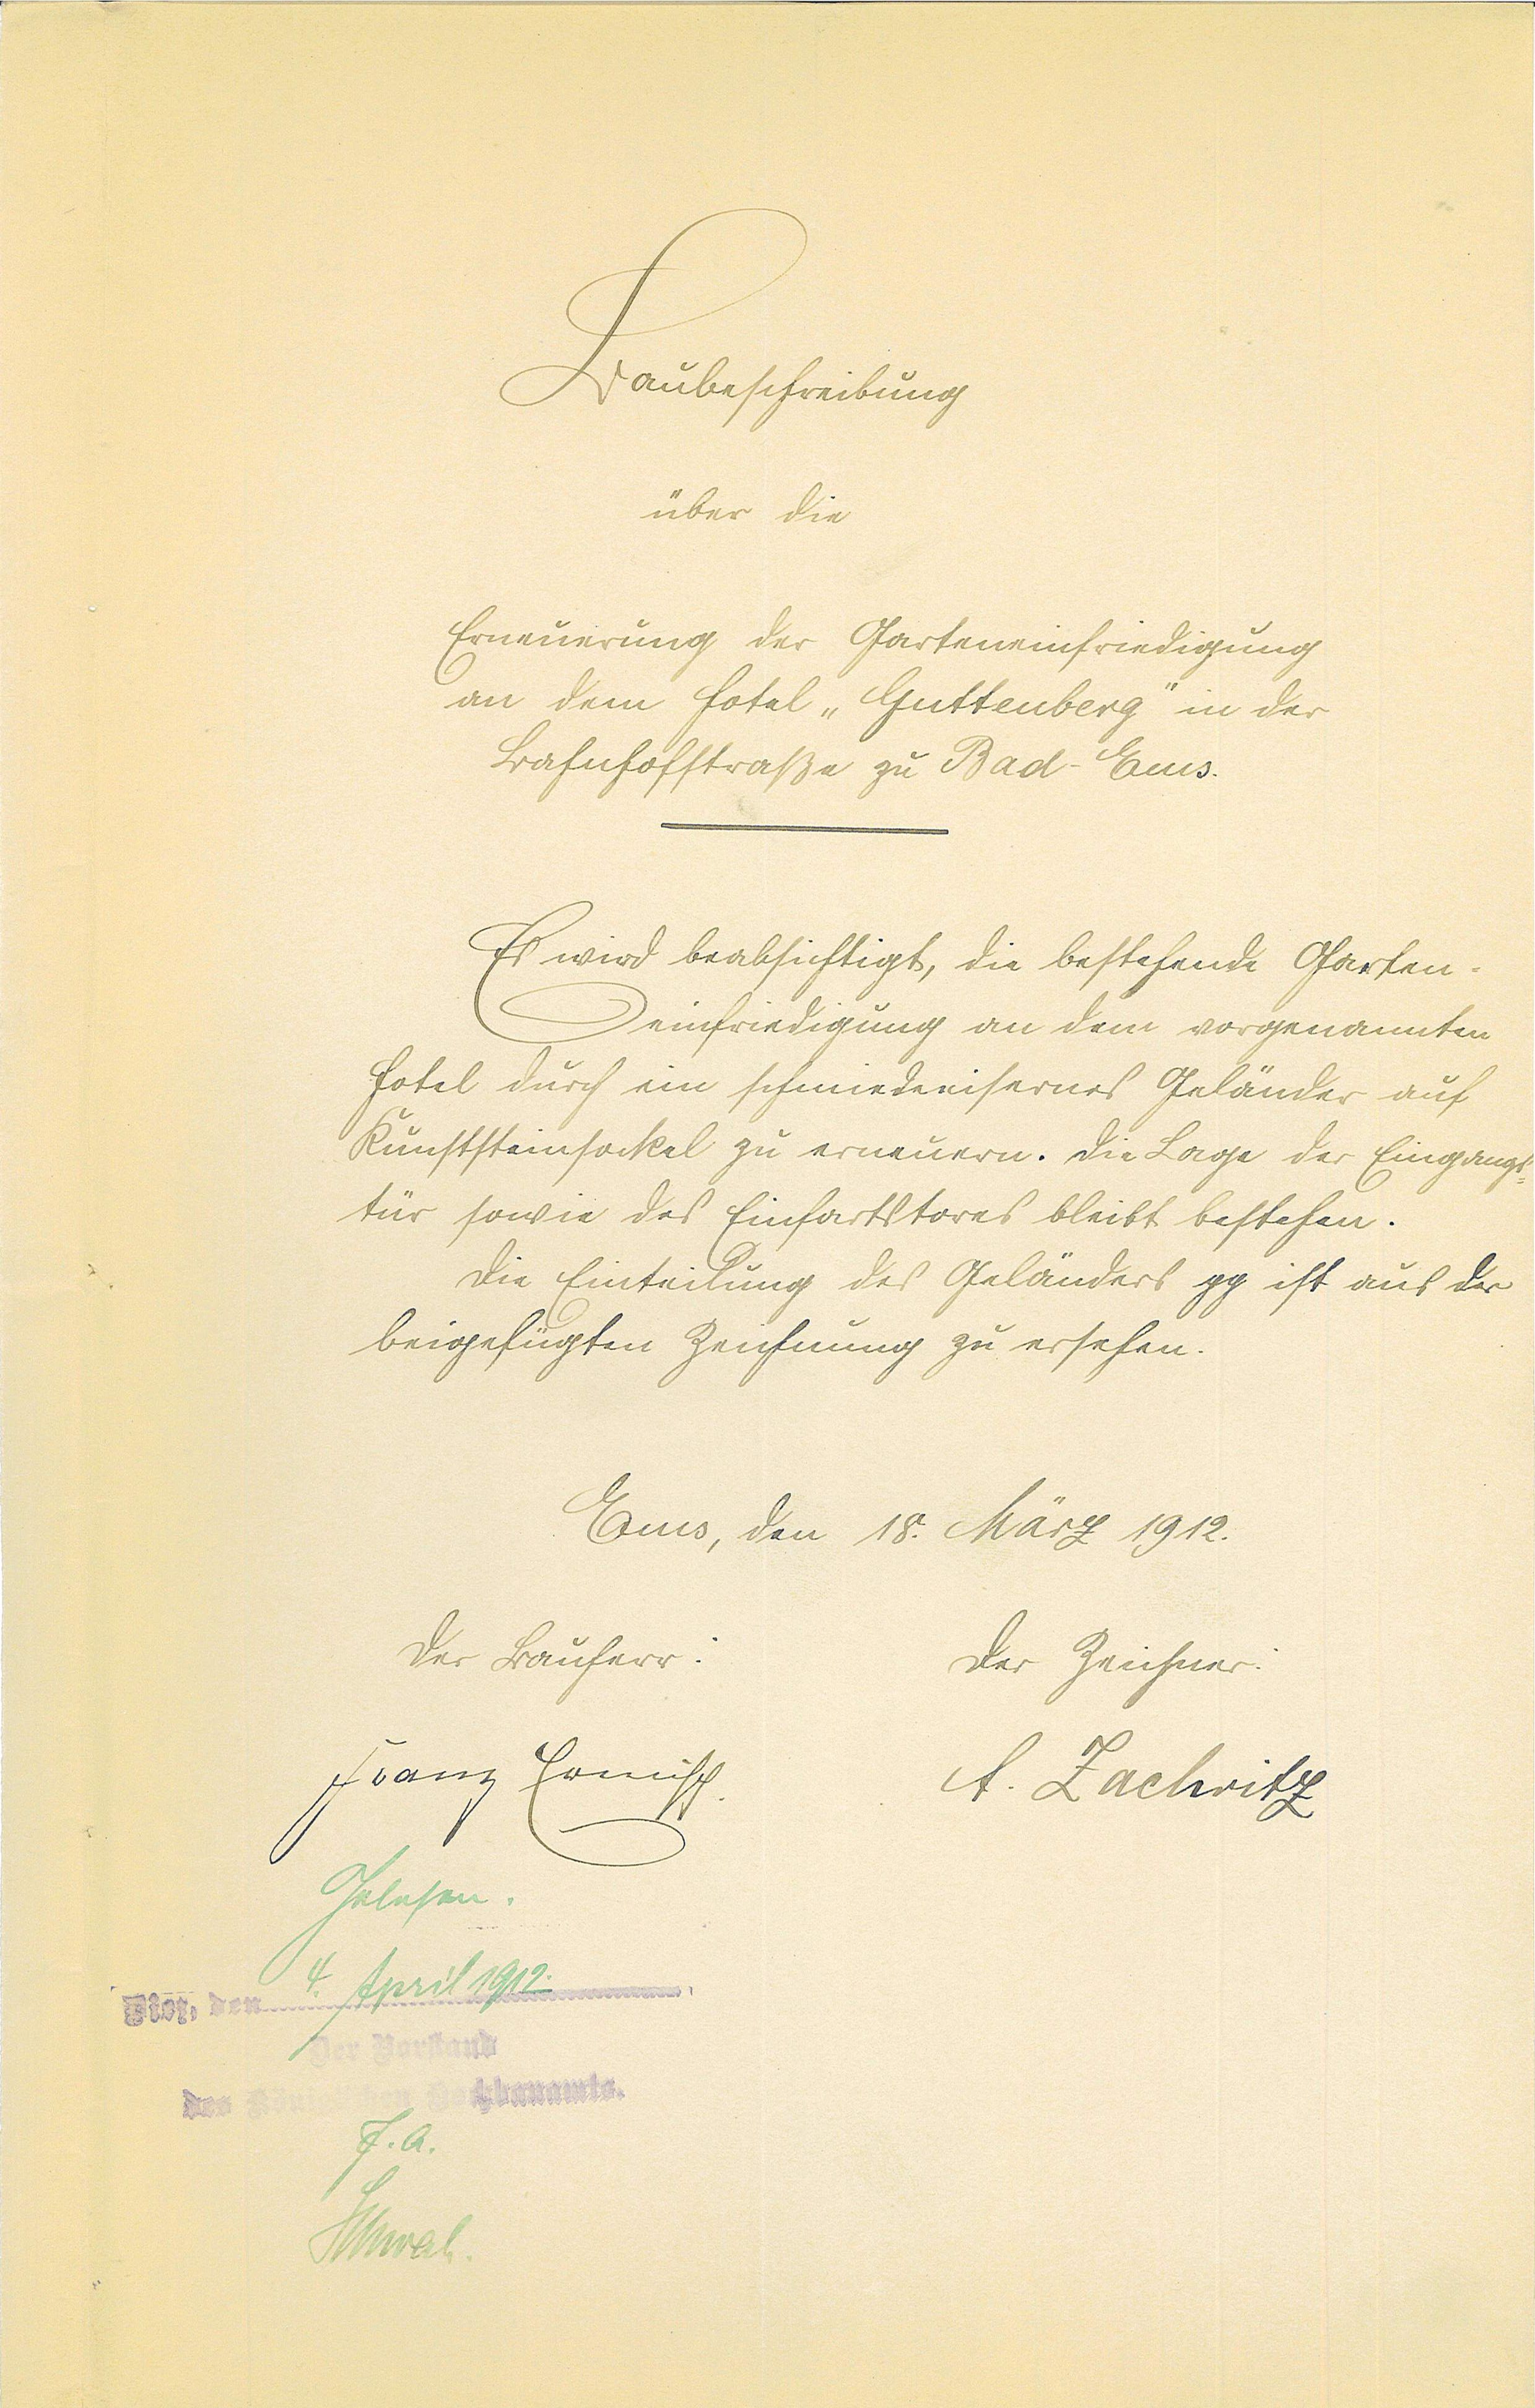 Baubeschreibung
über die
Erneuerung der Garteneinfriedigung
an dem Hotel „Guttenberg" in der
Bahnhofstraße zu Bad-Ems.
Es wird beabsichtigt, die bestehende Garten-
einfriedigung an dem vorgenannten
Hotel durch ein schmiedeeisernes Geländer auf
Kunststeinsockel zu erneuern. Die Lage der Eingangs=
tür sowie des Einfartstores bleibt bestehen.
Die Einteilung des Geländers pp ist aus der
beigefügten Zeichnung zu ersehen.
Ems, den 18. März 1912.
Der Bauherr: Der Zeichner:
Franz Ermisch. A. Zachritz
Gelesen.
Diez, den 4. April 1912.
Der Vorstand
des Königlichen Hochbauamts.
J. A.